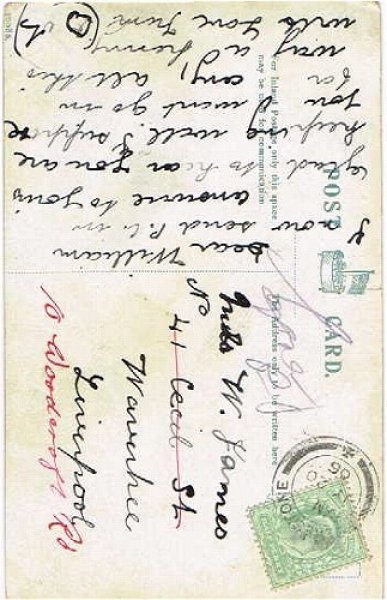 POST CARD.
For Inland Postage only this space
may be used for communication
The Address only to be written here
Dear William
I now send P.C. in
answer to yours
glad to hear you are
keeping well I suppose
you want go in
all this
way a Penny
with love
W. James
No 41 Cecil St
Wavertree
Liverpool
10 Woodcroft Rd